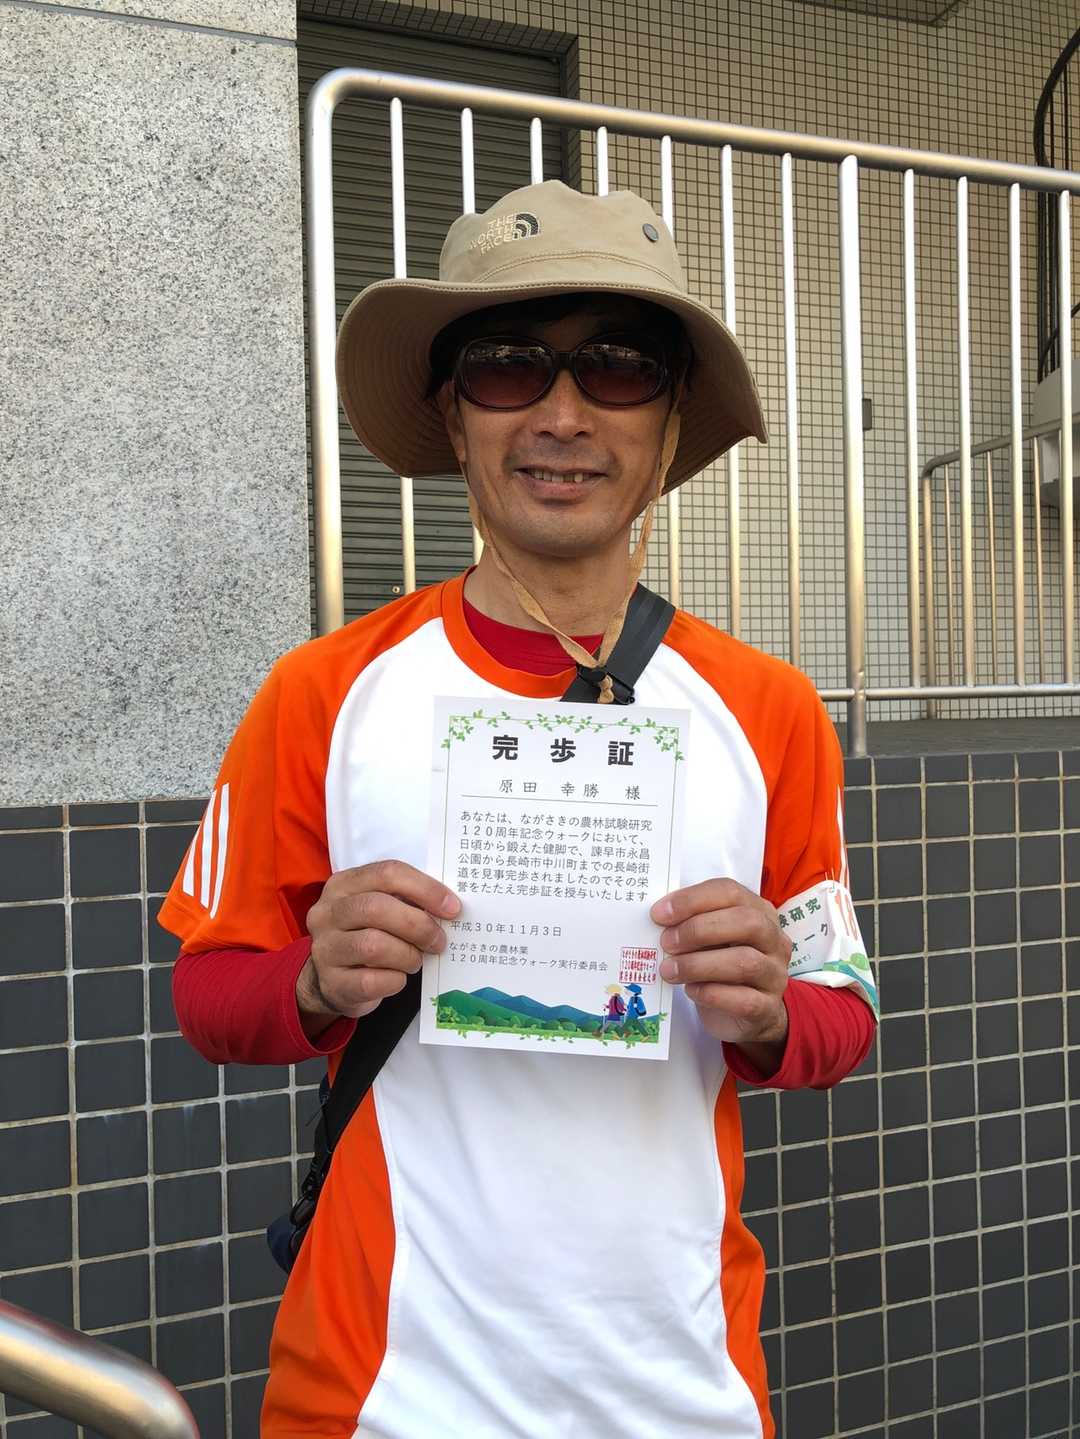 THE
NORTH
FACE
完歩証
原田 幸勝 様
あなたは、ながさきの農林試験研究
120周年記念ウォークにおいて、
日頃から鍛えた健脚で、諫早市永昌
公園から長崎市中川町までの長崎街
道を見事完歩されましたのでその栄
誉をたたえ完歩証を授与いたします
平成30年11月3日
ながさきの農林業
120周年記念ウォーク実行委員会
ながさきの農林試験研究
120周年記念ウォーク
験研究
ォーク